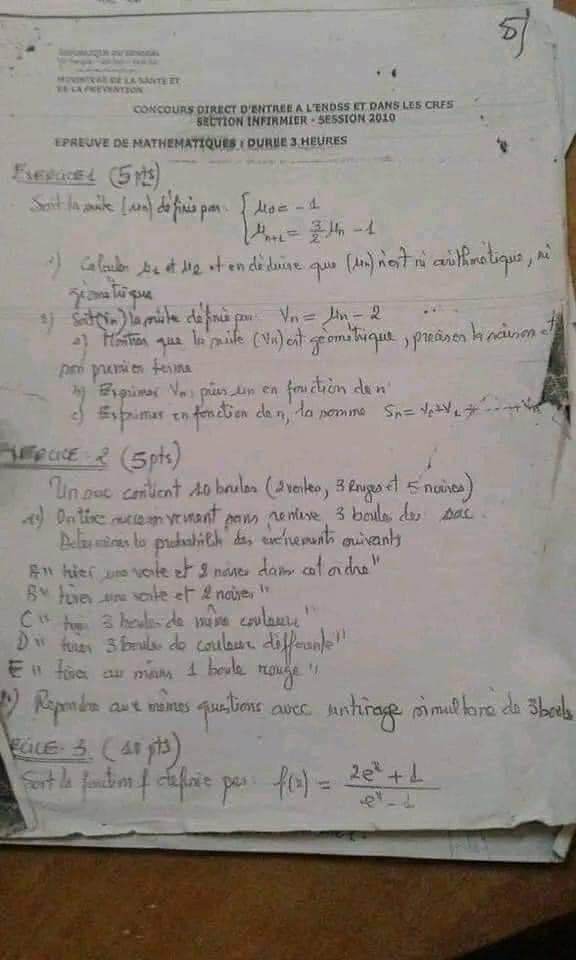 5/
REPUBLIQUE DU SENEGAL
MINISTERE DE LA SANTE ET
DE LA PREVENTION
CONCOURS DIRECT D'ENTREE A L'ENDSS ET DANS LES CRFS
SECTION INFIRMIER - SESSION 2010
EPREUVE DE MATHEMATIQUES : DUREE 3 HEURES
EXERCICE 1 (5 pts)
Soit la suite (un) définie par: { u0 = -1
un+1 = 3/2 un - 1
1) Calculer u1 et u2 et en déduire que (un) n'est ni arithmétique, ni
géométrique
2) Soit (vn) la suite définie par Vn = un - 2
a) Montrer que la suite (Vn) est géométrique, préciser la raison et
son premier terme
b) Exprimer Vn, puis un en fonction de n
c) Exprimer en fonction de n, la somme Sn = V0+V1+.....+Vn
EXERCICE - 2 (5pts)
Un sac contient 10 boules (2 vertes, 3 Rouges et 5 noires)
On tire successivement sans remise 3 boules du sac.
Déterminer la probabilité des événements suivants
A" tirer une verte et 2 noires dans cet ordre"
B" tirer une verte et 2 noires"
C" tirer 3 boules de même couleur"
D" tirer 3 boules de couleur différente"
E" tirer au moins 1 boule rouge"
) Repondre aux mêmes questions avec un tirage simultané de 3 boules
RCICE - 3 (10 pts)
Soit la fonction f définie par: f(x) = (2e^x + 1)/(e^x - 1)